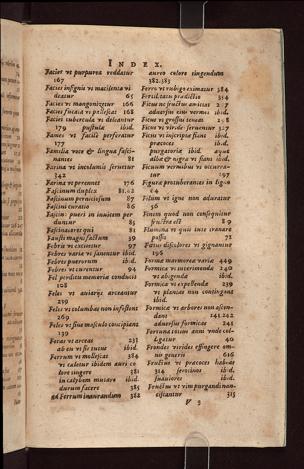 INDEX.
Facies vt purpurea reddatur
167
Facies insignis vt macilenta vi
deatur 65
Facies vt mangonizetur 166
Facies fucata vt pallescat 168
Facies tubercula vt deleantur
179 pustulæ ibid.
Fames vt facilè perferatur
177
Familia voce & lingua fasci-
nantes 81
Farina vt incolumis seruetur
342
Farina vt perennet 176
Fascinum duplex 81.82
Fascinum perniciosum 87
Fascini curatio 86
Fascin: pueri in inuicem per
duntur 85
Fascinatores qui 81
Fausti magni factum 39
Febris vt excitetur 97
Febres varia vt sanentur ibid.
Febres puerorum ibid.
Febres vt curentur 94
Fel perditu memoria conducit
108
Feles vt auiariis arceantur
239
Feles vt columbas non infestent
269
Feles vt sine masculo concipiant
139
Feras vt arceas 231
ab eis vt sis tutus ibid.
Ferrum vt mollescat 384
vt calibur ibidem auri co
lore tingere 381
in calybem mutare ibid.
durum facere 385
ad Ferrum inaurandum 382
aureo colore tingendum
382.383
Ferro vt rubigo eximatur 384
Fertilitatis prædictio 354
Ficus ne fructus amittat 217
aduersus eius vermes ibid.
Ficus vt grossius tenuis 298
Ficus vt virides seruentur 327
Ficus vt inscriptæ fiant ibid.
præcoces ibid.
purgatoria ibid. aquæ
alba & nigra vt fiant ibid.
Ficuum vermibus vt occurra-
tur 297
Figura protuberantes in lig-
64
Filum vt igne non aduratur
56
Finem quod non consequitur
frustra est 89
Flumina vt quis tutè transire
possit 71
Fœtus discolores vt gignantur
196
Forma marmorea varia 449
Formica vt interimenda 240
vt abigenda ibid.
Formica vt expellenda 239
vt plantas non contingens
ibid.
Formica vt arbores non ascen-
dant 241.242
aduersus formicas 241
Fortuna totius anni vnde col-
ligatur 40
Frondes virides effingere om-
nis generis 616
Fructus vt præcoces habeas
314 serotinos ibid.
suauiores ibid.
Fructus vt vim purgandi nan-
ciscantur 315
V 3